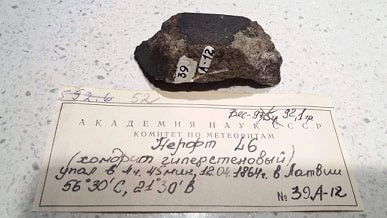 39
А-12
552,6 52
Вес- 92,1 гр
АКАДЕМИЯ НАУК СССР
КОМИТЕТ ПО МЕТЕОРИТАМ
Нерфт L6
(хондрит гиперстеновый)
упал в 4 ч. 45 мин, 12.04.1864г. в Латвии
56°30'С, 21°30'В
№ 39, А-12